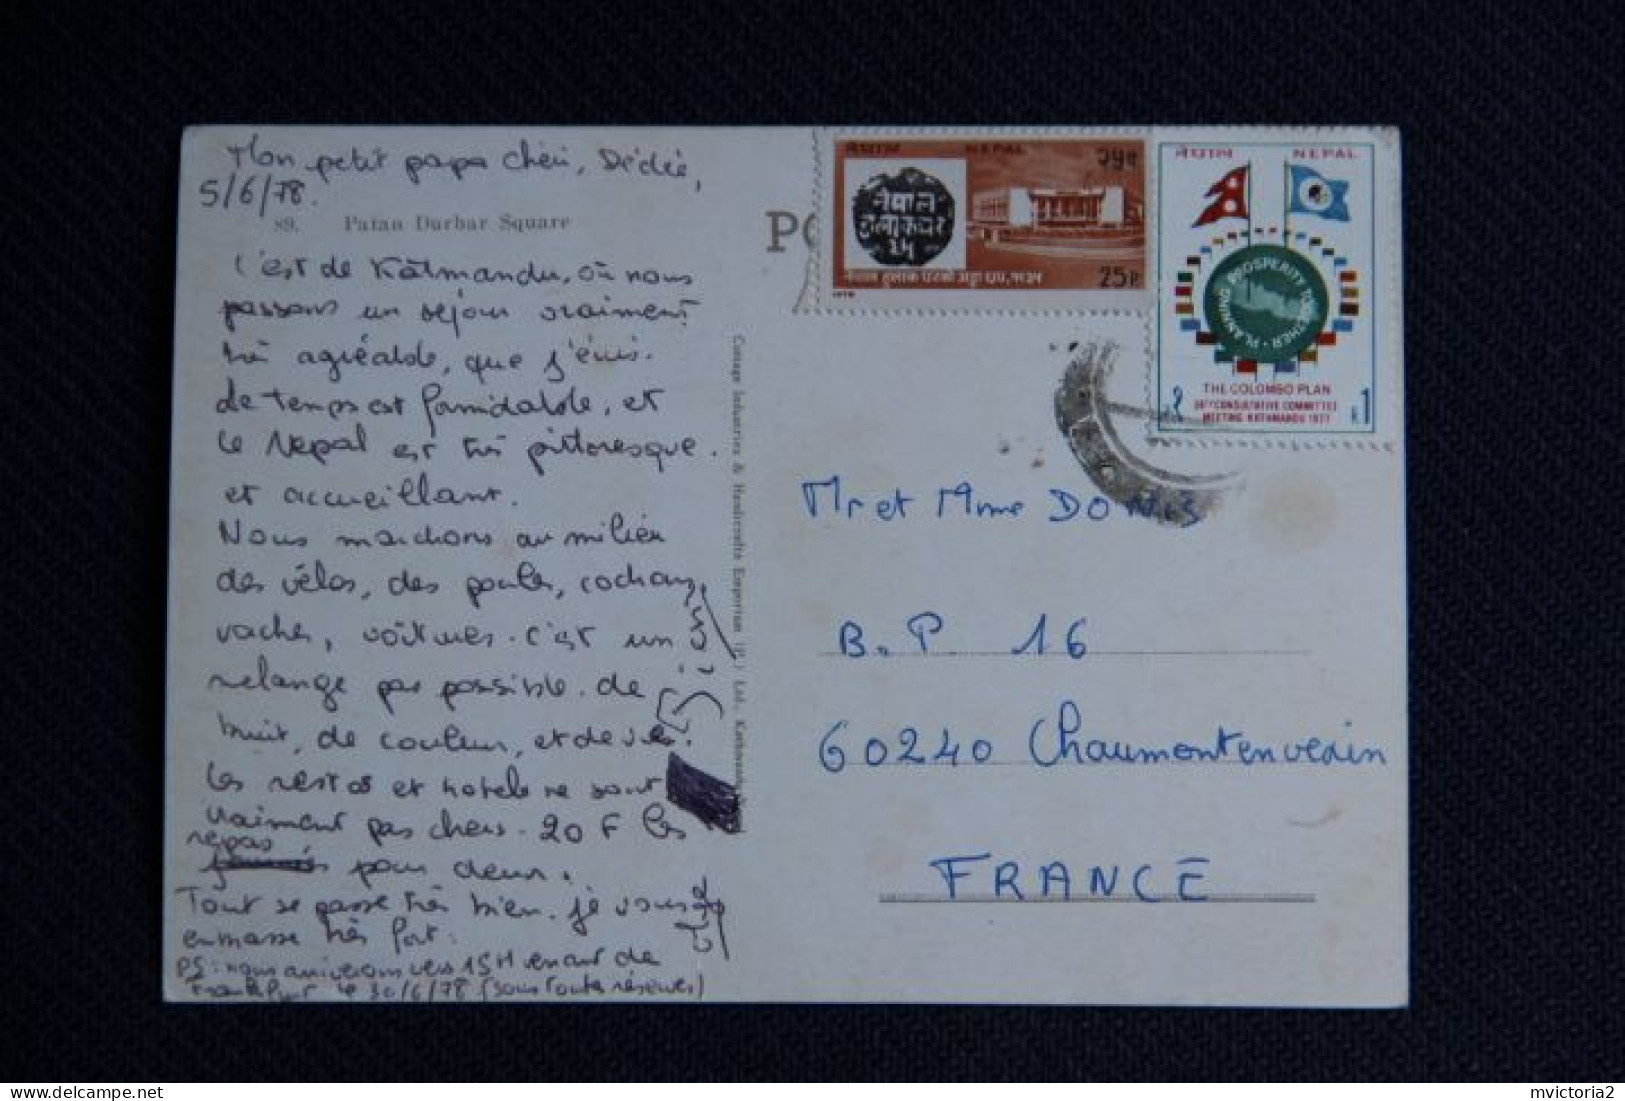 Mon petit papa chéri, Dédée,
5/6/78.
89. Patan Durbar Square
C'est de Katmandu, où nous
passons un séjour vraiment
très agréable, que j'écris.
Le temps est formidable, et
le Népal est très pittoresque.
et accueillant.
Nous marchons au milieu
des vélos, des poules, cochons,
vaches, voitures. c'est un
melange pas possible. de
bruit, de couleur, et de vie.
Les restos et hotels ne sont
vraiment pas chers. 20 F les
repas
pour deux.
Tout se passe très bien. je vous
embrasse très fort.
PS: nous arriverons vers 15H venant de
Frankfurt le 30/6/78 (sous toutes réserves)
Cottage Industries & Handicrafts Emporium (P.) Ltd. Kathmandu
PO
नेपाल NEPAL २५प
नेपाल
हुलाकघर
२५
25P
1978
नेपाल NEPAL
PLANNING PROSPERITY TOGETHER
THE COLOMBO PLAN
26TH CONSULTATIVE COMMITTEE
MEETING KATHMANDU 1977
1
Mr et Mme DONIS
B.P. 16
60240 Chaumontenvexin
FRANCE
mvictoria2